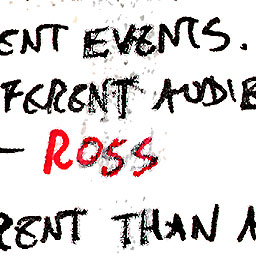 ENT EVENTS.
FERENT AUDIE
— ROSS
RENT THAN A